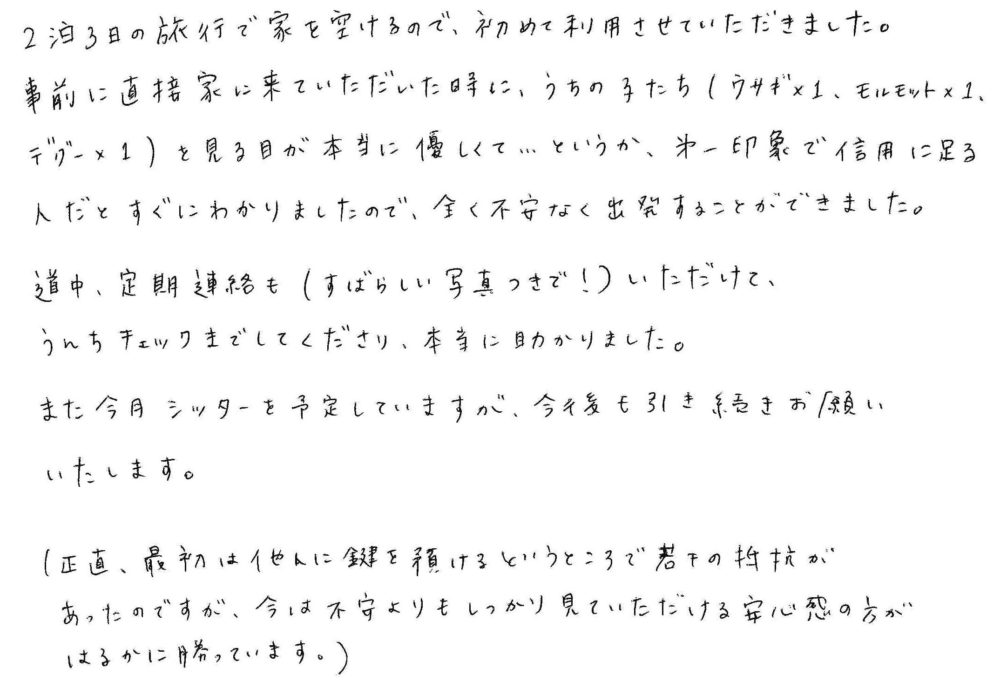 2泊3日の旅行で家を空けるので、初めて利用させていただきました。
事前に直接家に来ていただいた時に、うちの子たち(ウサギ×1、モルモット×1、
デグー×1)を見る目が本当に優しくて…というか、第一印象で信用に足る
人だとすぐにわかりましたので、全く不安なく出発することができました。
道中、定期連絡も(すばらしい写真つきで!)いただけて、
うんちチェックまでしてくださり、本当に助かりました。
また今月シッターを予定していますが、今後も引き続きお願い
いたします。
(正直、最初は他人に鍵を預けるというところで若干の抵抗が
あったのですが、今は不安よりもしっかり見ていただける安心感の方が
はるかに勝っています。)